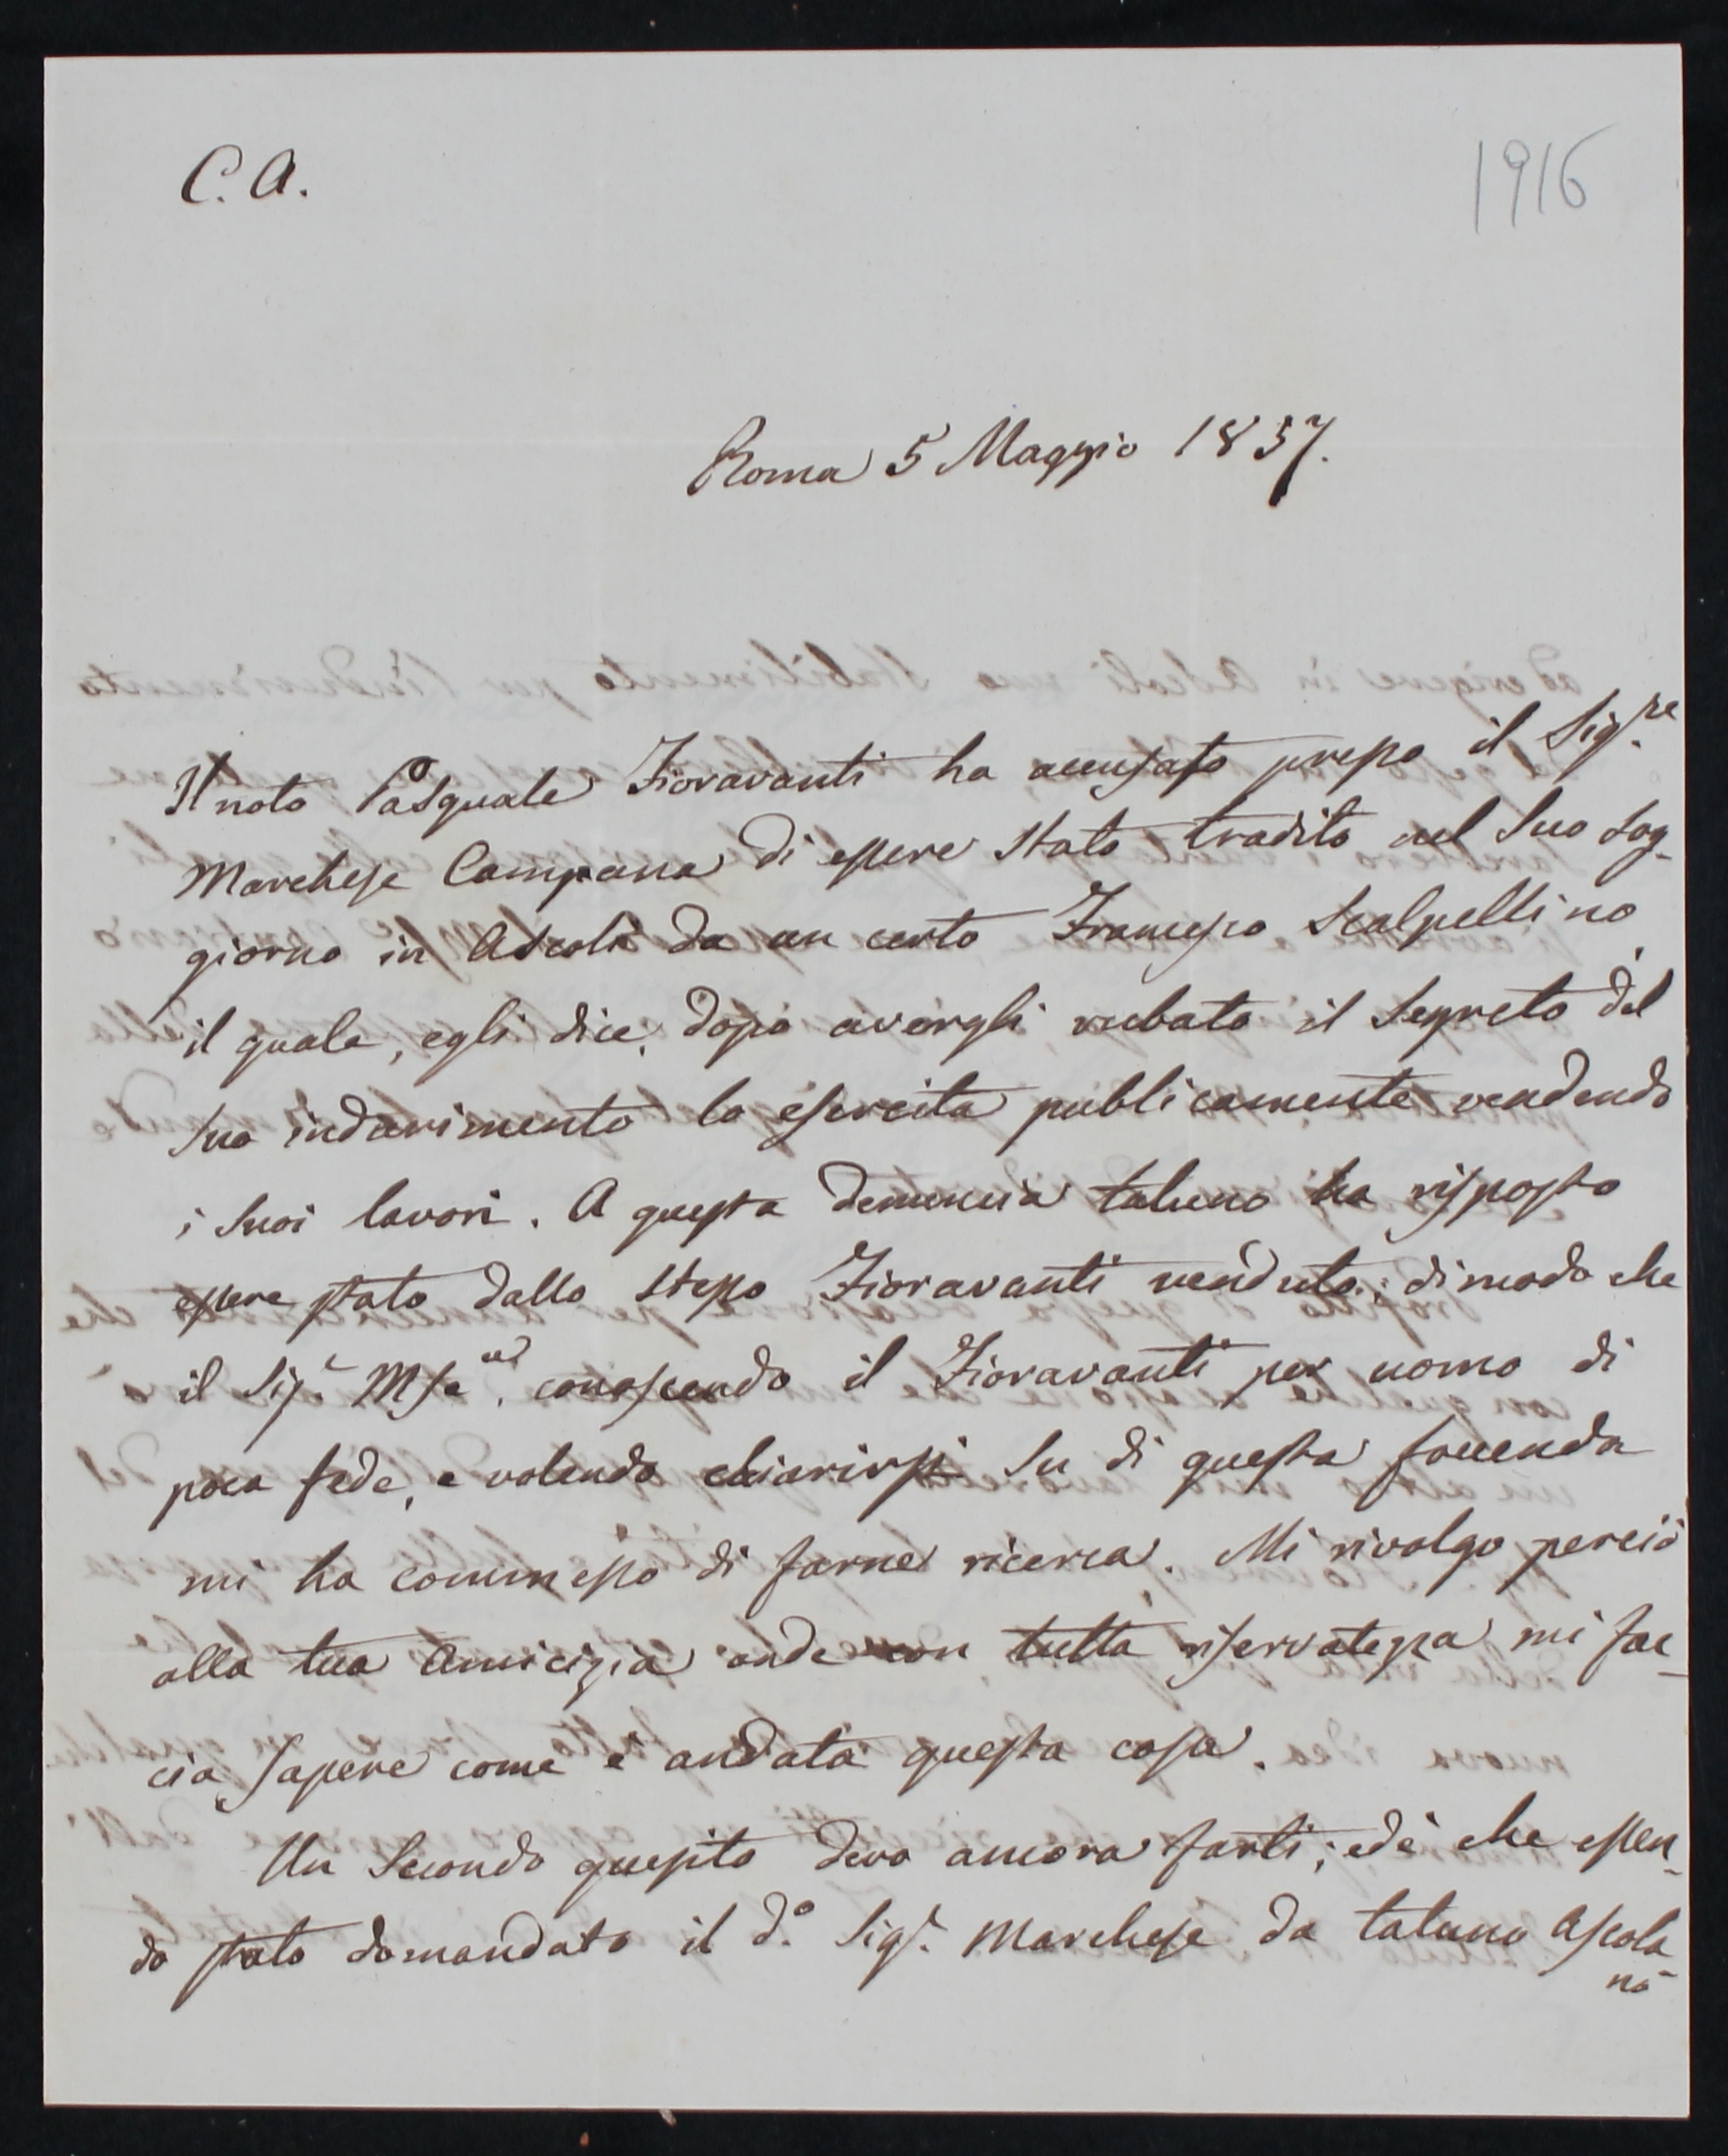 C. A.
1916
Roma 5 Maggio 1837.
Il noto Pasquale Fioravanti ha accusato presso il Sig.re
Marchese Campana di essere stato tradito nel suo sog-
giorno in Ascoli da un certo Francesco Scalpellino
il quale, egli dice, dopo avergli rubato il segreto del
suo indurimento lo esercita publicamente vendendo
i suoi lavori. A questa denuncia taluno ha risposto
essere stato dallo stesso Fioravanti venduto; dimodo che
il Sig.r Mse conoscendo il Fioravanti per uomo di
poca fede, e volendo chiarirsi su di questa faccenda
mi ha commesso di farne ricerca. Mi rivolgo perciò
alla tua amicizia onde con tutta riservatezza mi fac-
cia sapere come è andata questa cosa.
Un secondo quesito devo ancora farti; ed è che essen-
do stato domandato il d.o Sig.r Marchese da taluno Ascola
no